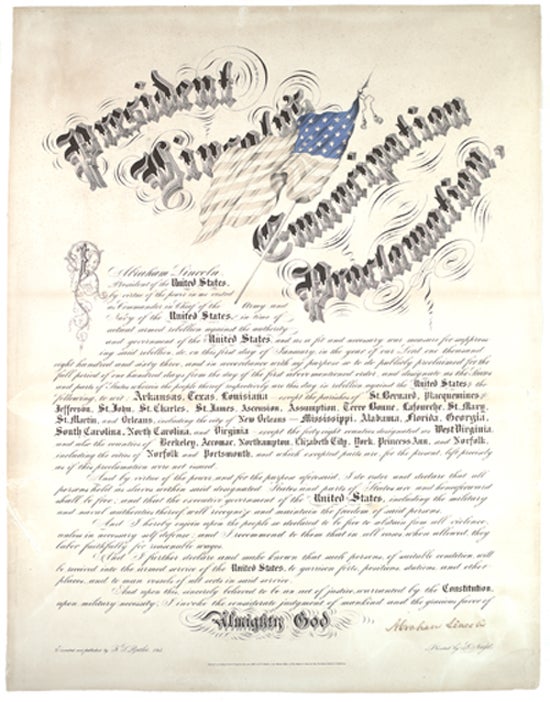 President
Lincoln's
Emancipation
Proclamation.
I, Abraham Lincoln
President of the United States,
by virtue of the power in me vested
as Commander in Chief of the Army and
Navy of the United States, in time of
actual armed rebellion against the authority
and government of the United States and as a fit and necessary war measure for suppress-
ing said rebellion, do, on this first day of January, in the year of our Lord one thousand
eight hundred and sixty three, and in accordance with my purpose so to do publicly proclaimed for the
full period of one hundred days from the day of the first above mentioned order, and designate as the States
and parts of States wherein the people thereof respectively are this day in rebellion against the United States, the
following, to wit Arkansas, Texas, Louisiana except the parishes of St. Bernard, Placquemines,
Jefferson, St. John, St. Charles, St. James, Ascension, Assumption, Terre Bonne, Lafourche, St. Mary,
St. Martin, and Orleans, including the city of New Orleans Mississippi, Alabama, Florida, Georgia,
South Carolina, North Carolina, and Virginia except the forty eight counties designated as West Virginia,
and also the counties of Berkeley, Accomac, Northampton, Elizabeth City, York, Princess Ann, and Norfolk,
including the cities of Norfolk and Portsmouth, and which excepted parts are, for the present, left precisely
as if this proclamation were not issued.
And by virtue of the power, and for the purpose aforesaid, I do order and declare that all
persons held as slaves within said designated States and parts of States are and henceforward
shall be free; and that the executive government of the United States, including the military
and naval authorities thereof, will recognize and maintain the freedom of said persons.
And I hereby enjoin upon the people so declared to be free to abstain from all violence,
unless in necessary self defense; and I recommend to them that in all cases when allowed, they
labor faithfully for reasonable wages.
And I further declare and make known that such persons, of suitable condition will
be received into the armed service of the United States, to garrison forts, positions, stations, and other
places, and to man vessels of all sorts in said service.
And upon this, sincerely believed to be an act of justice, warranted by the Constitution,
upon military necessity, I invoke the considerate judgment of mankind and the gracious favor of
Almighty God
Abraham Lincoln